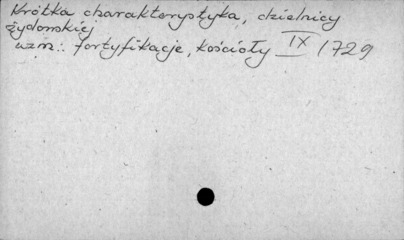 Krótka charakterystyka, dzielnicy
żydowskiej
wzm.: fortyfikacje, kościoły IX /729